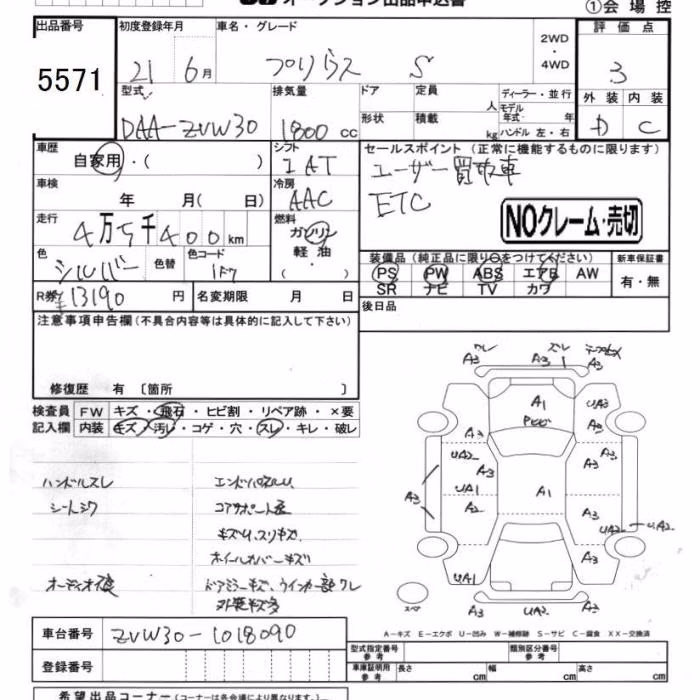 オークション出品申込書
①会場控
出品番号
初度登録年月
車名・グレード
2WD
・
4WD
評価点
5571
21年6月
プリウス S
3
型式
排気量
ドア
定員
人
ディーラー・並行
モデル年式 年
外装 内装
DAA-ZVW30
1800cc
形状
積載
kg
ハンドル 左・右
D C
車歴
自家用・( )
シフト
IAT
セールスポイント (正常に機能するものに限ります)
ユーザー買取車
車検
年 月( 日)
冷房
AAC
ETC
NOクレーム・売切
走行
4万5千400km
燃料
ガソリン
軽油
( ・ )
色
シルバー
色替
色コード
装備品 (純正品に限り○をつけてください)
新車保証書
PS PW ABS エアB AW
有・無
SR ナビ TV カワ
R券 ¥13190円
名変期限 月 日
後日品
注意事項申告欄 (不具合内容等は具体的に記入して下さい)
修復歴 有 〔箇所 〕
検査員 FW キズ・飛石・ヒビ割・リペア跡・×要
記入欄 内装 キズ・汚レ・コゲ・穴・スレ・キレ・破レ
ハンドルスレ
シートシワ
コアサポート
キズU、スリキズ
ホイールカバーキズ
ドアミラーキズ、ウインカー部ワレ
外装キズ多
ワレ A3 A3 ズレ A3
A1 UA3
A3 A3
UA2 A3 A3
A3 UA1 A1
A2 A3
UA2 UA2
A3
UA1
スペア
A3 UA2 A3
A-キズ E-エクボ U-凹み W-補修跡 S-サビ C-腐食 XX-交換済
車台番号 ZVW30-1018090
型式指定番号 参考
類別区分番号 参考
登録番号
車庫証明用 参考
長さ cm
幅 cm
高さ cm
希望出品コーナー (コーナーは各会場により異なります。)